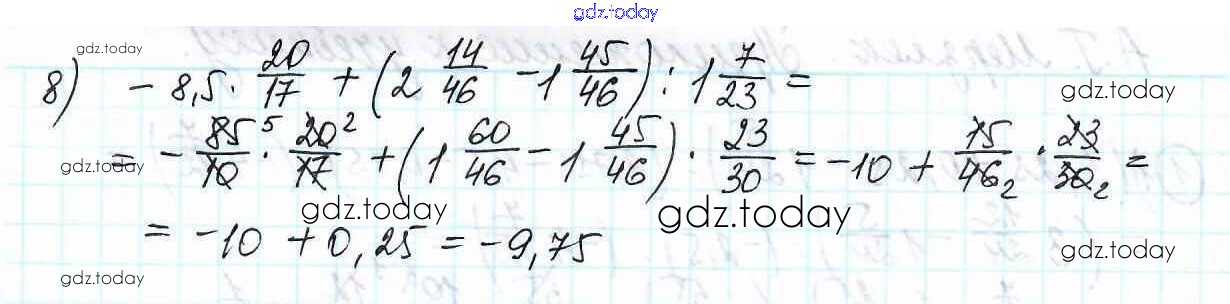 gdz.today
gdz.today
8) -8,5 · 20/17 + (2 14/46 - 1 45/46) : 1 7/23 =
gdz.today
= - 85/10 5 · 20/17 2 + (1 60/46 - 1 45/46) · 23/30 = -10 + 15/46 2 · 23/30 2 =
gdz.today
gdz.today
gdz.today
= -10 + 0,25 = -9,75
gdz.today
gdz.today